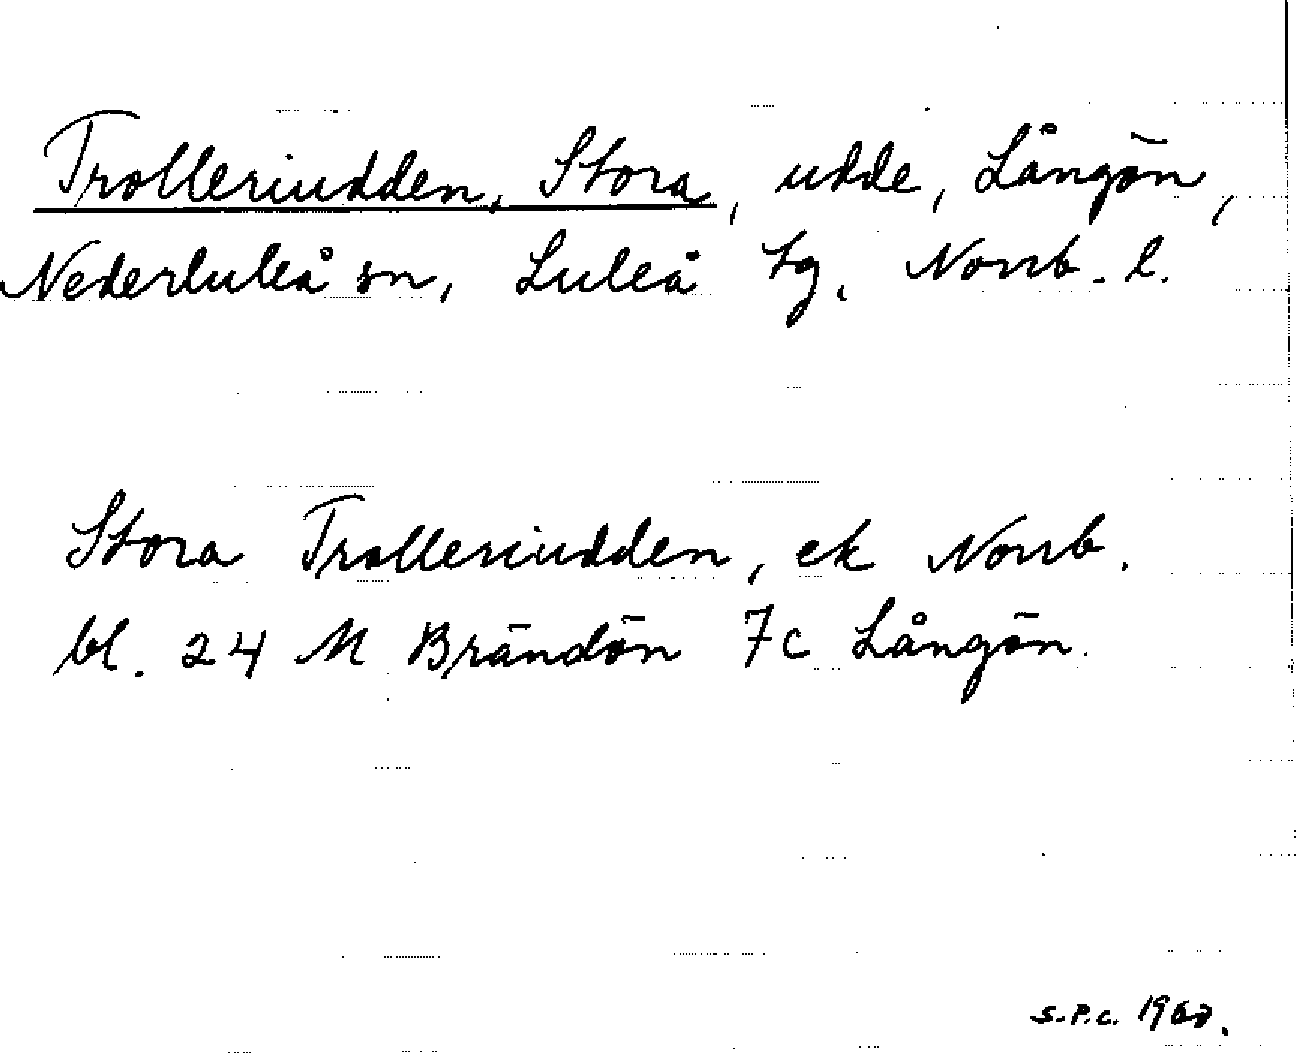 Trolleriudden, Stora, udde, Långön,
Nederluleå sn, Luleå tg, Norrb. l.
Stora Trolleriudden, ek Norrb.
bl. 24 M Brändön 7c Långön.
S.P.C. 1967.